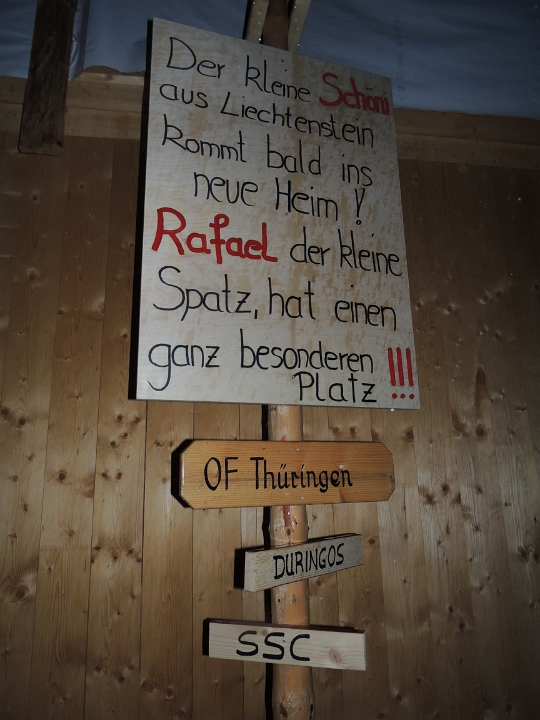 Der kleine Schäni
aus Liechtenstein
kommt bald ins
neue Heim !
Rafael der kleine
Spatz, hat einen
ganz besonderen !!!
Platz
OF Thüringen
DURINGOS
SSC